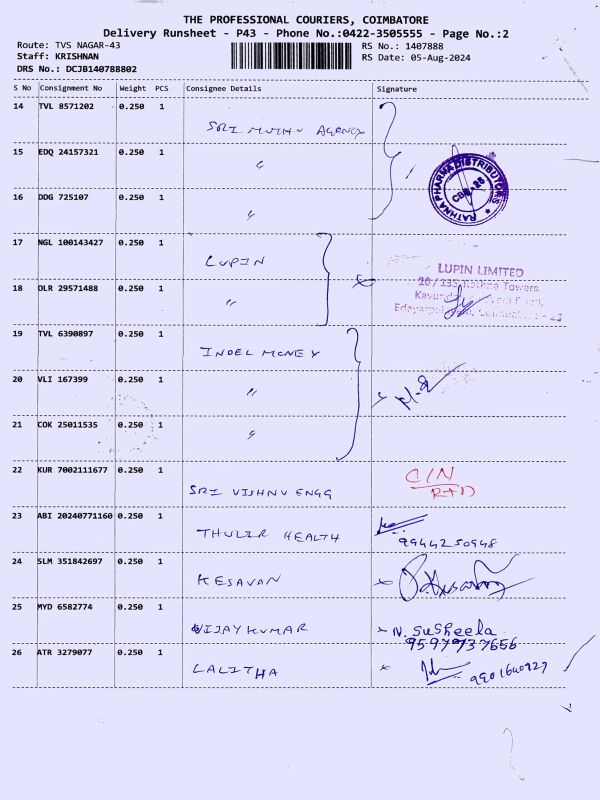 THE PROFESSIONAL COURIERS, COIMBATORE
Delivery Runsheet - P43 - Phone No.:0422-3505555 - Page No.:2
Route: TVS NAGAR-43
Staff: KRISHNAN
DRS No.: DCJB140788802
RS No.: 1407888
RS Date: 05-Aug-2024
S No Consignment No Weight PCS Consignee Details Signature
14 TVL 8571202 0.250 1 SRI MUTHU AGENCY
15 EDQ 24157321 0.250 1 "
16 DDG 725107 0.250 1 "
RATHNA PHARMA DISTRIBUTORS
17 NGL 100143427 0.250 1 LUPIN
LUPIN LIMITED
18 DLR 29571488 0.250 1 "
10/135, Rathna Towers,
19 TVL 6390897 0.250 1 INDEL MONEY
20 VLI 167399 0.250 1 "
21 COK 25011535 0.250 1 "
22 KUR 7002111677 0.250 1 SRI VISHNU ENGG
C/N
RTD
23 ABI 20240771160 0.250 1 THULIR HEALTH
9944250948
24 SLM 351842697 0.250 1 KESAVAN
25 MYD 6582774 0.250 1 VIJAYKUMAR N. Susheela
9597937656
26 ATR 3279077 0.250 1 LALITHA